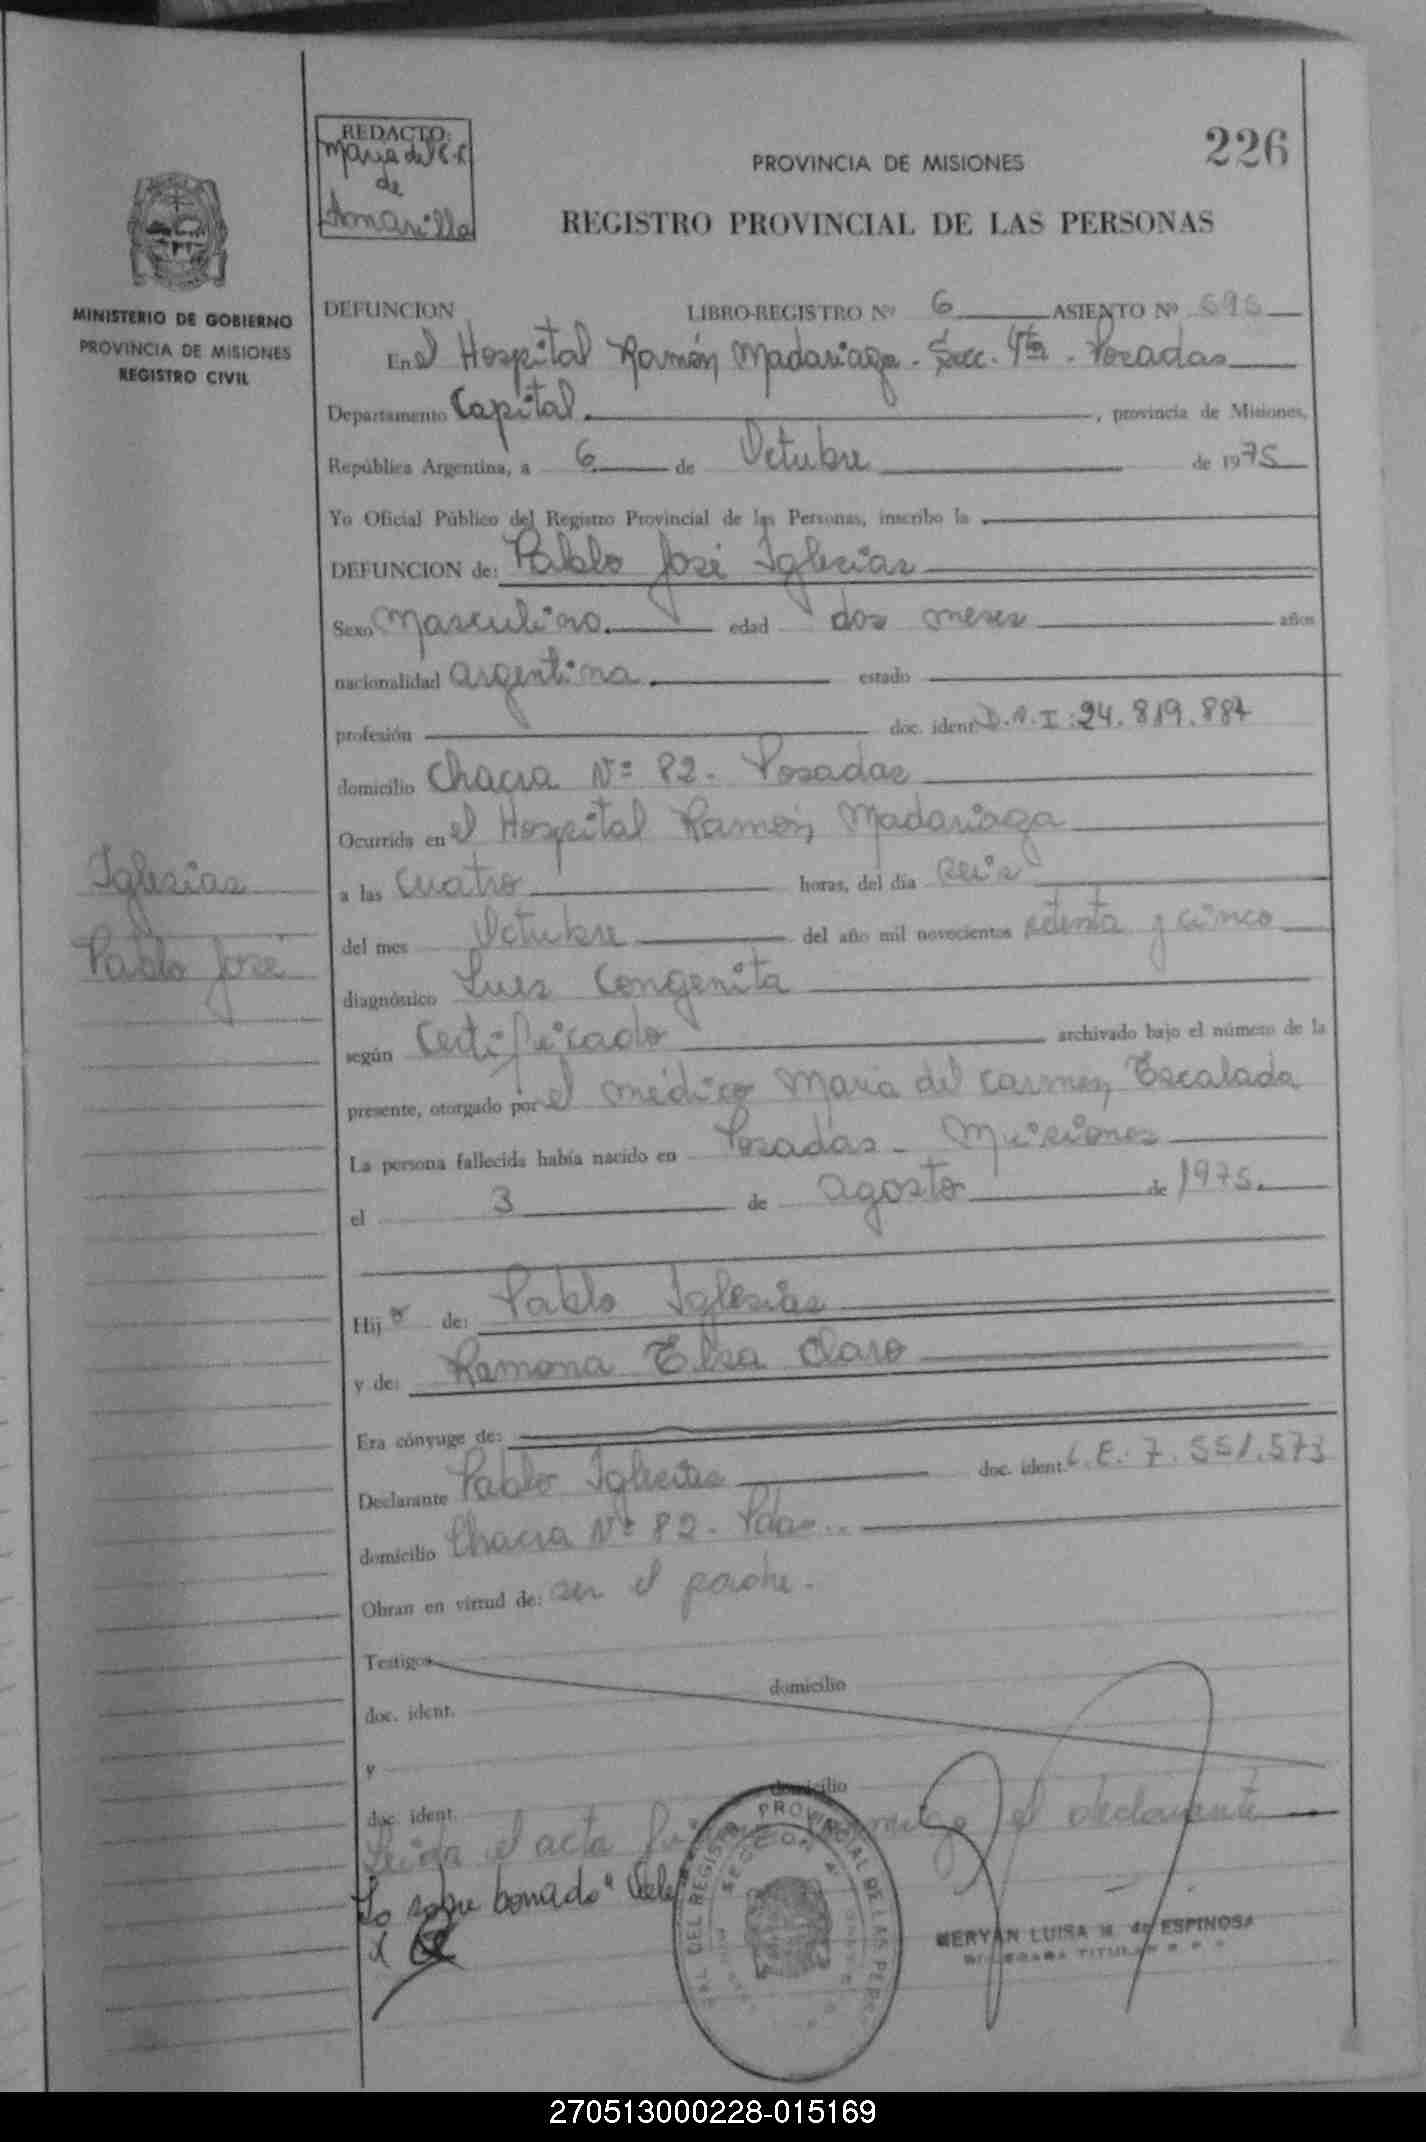 226
REDACTO:
Maria del C. R.
de
Amarilla
PROVINCIA DE MISIONES
REGISTRO PROVINCIAL DE LAS PERSONAS
MINISTERIO DE GOBIERNO
PROVINCIA DE MISIONES
REGISTRO CIVIL
DEFUNCION LIBRO-REGISTRO Nº 6 ASIENTO Nº 595
En el Hospital Ramón Madariaga - Secc. 4ta - Posadas
Departamento Capital, provincia de Misiones,
República Argentina, a 6 de Octubre de 1975
Yo Oficial Público del Registro Provincial de las Personas, inscribo la
DEFUNCION de: Pablo José Iglesias
Sexo Masculino. edad dos meses años
nacionalidad argentina. estado
profesión doc. ident. D.N.I: 24.819.887
domicilio Chacra Nº 82. Posadas
Ocurrida en el Hospital Ramón Madariaga
Iglesias
Pablo José
a las cuatro horas, del día seis
del mes Octubre del año mil novecientos setenta y cinco
diagnóstico Lues Congenita
según Certificado archivado bajo el número de la
presente, otorgado por el médico Maria del Carmen Escalada
La persona fallecida había nacido en Posadas - Misiones
el 3 de agosto de 1975.
Hijo de: Pablo Iglesias
y de: Ramona Elsa Claro
Era cónyuge de:
Declarante Pablo Iglesias doc. ident. L.E. 7.551.573
domicilio Chacra Nº 82. Pdas.
Obran en virtud de: ser el padre.
Testigos domicilio
doc. ident.
y domicilio
doc. ident.
Leida el acta el declarante
Lo sobre borrado" Vale
DEL REGISTRO PROVINCIAL DE LAS PERS
SECCION 4
MERYAN LUISA M. de ESPINOSA
TITULAR
270513000228-015169